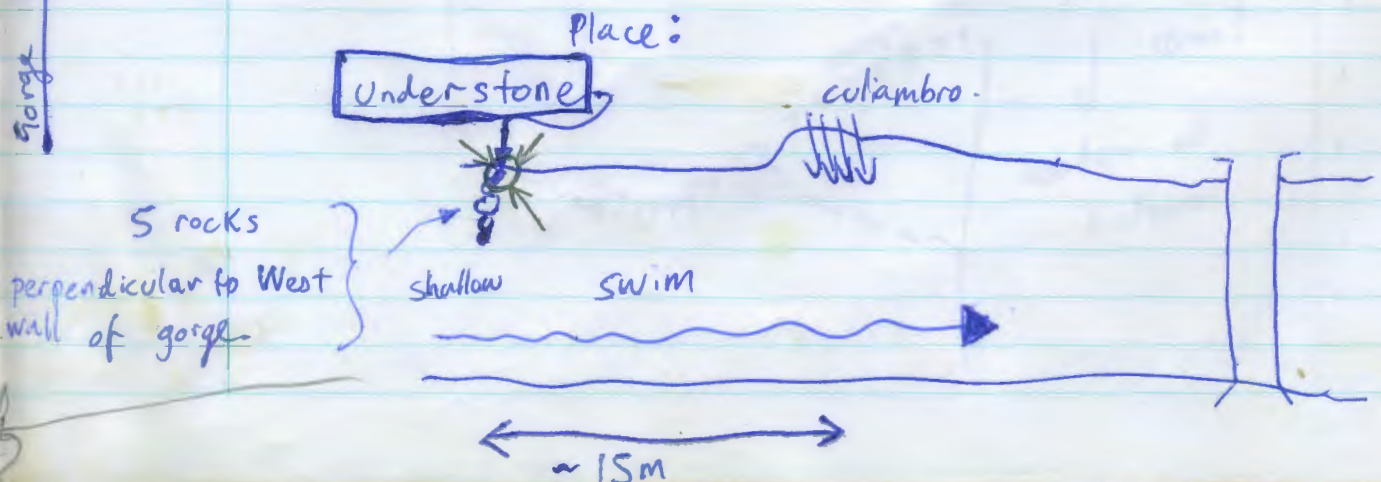 Gorge
Place:
Understone
culiambro.
5 rocks
perpendicular to West
wall of gorge
shallow swim
~ 15m